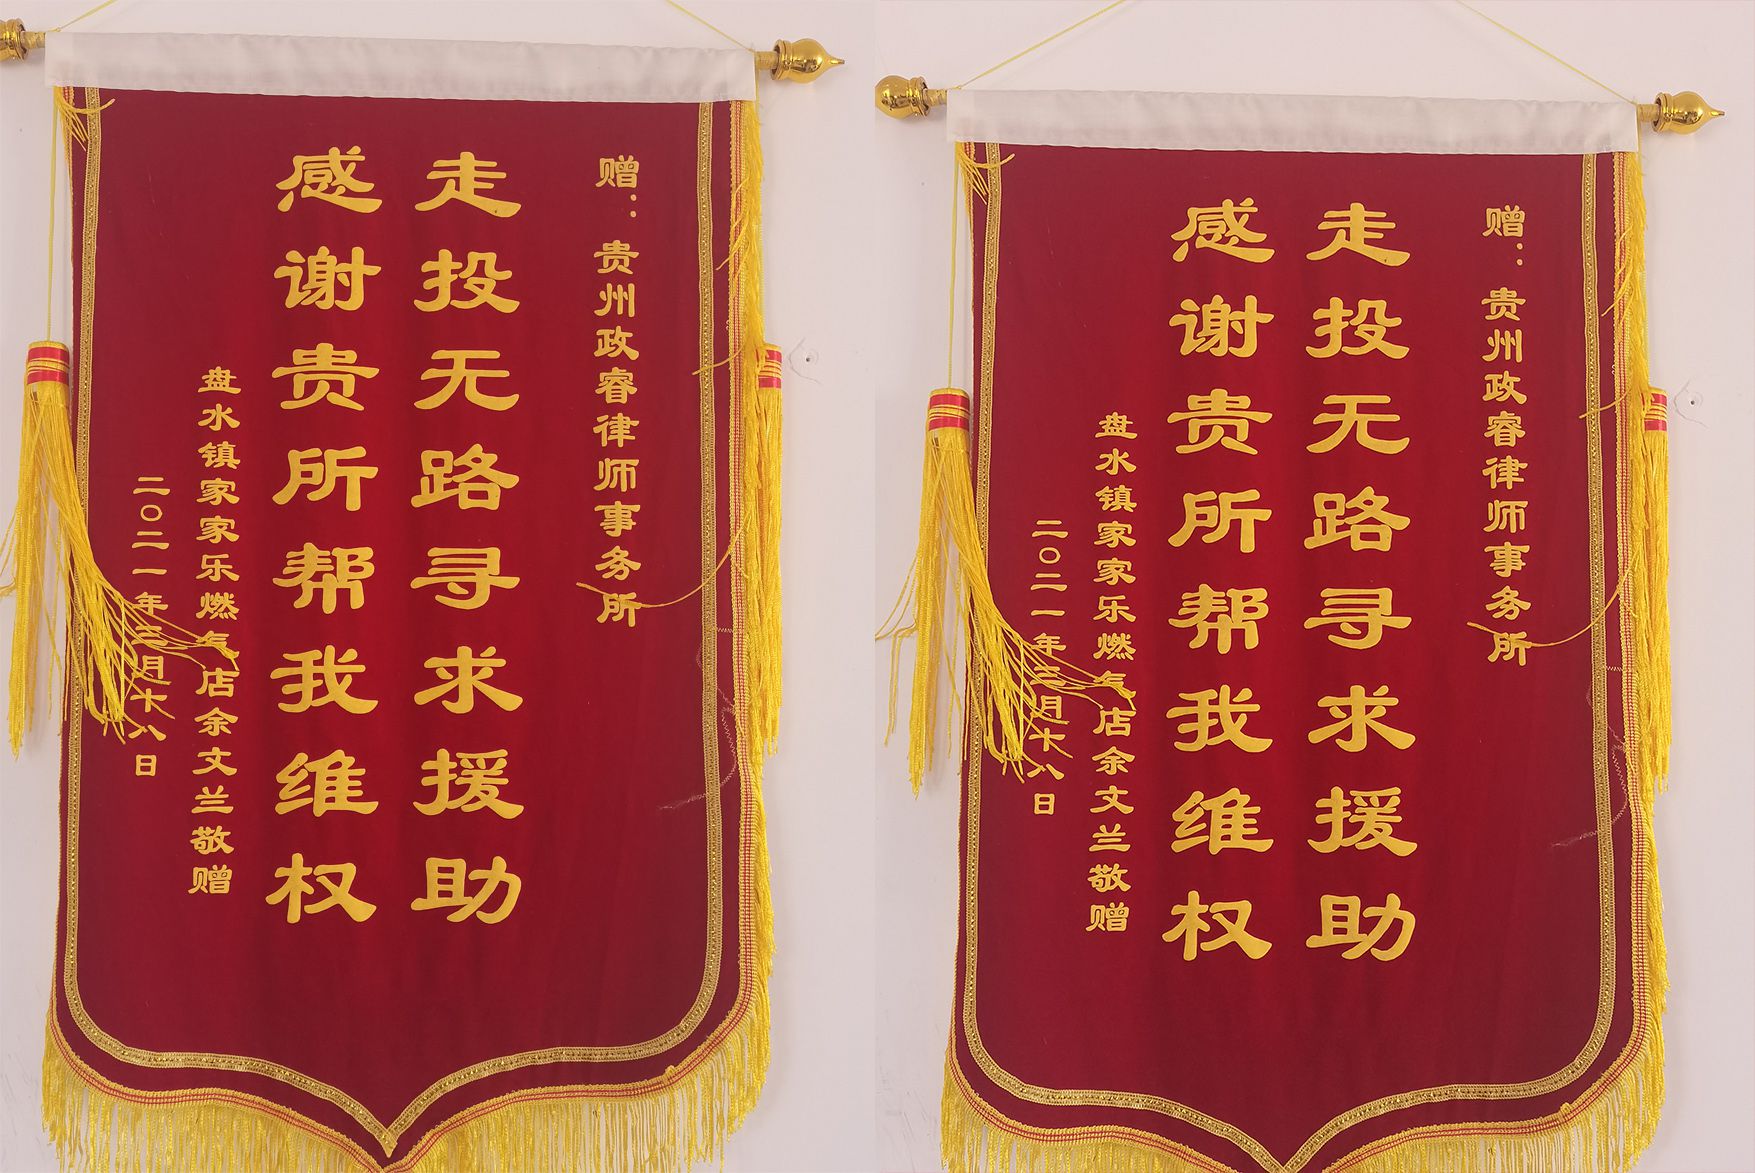 赠：贵州政睿律师事务所
走投无路寻求援助
感谢贵所帮我维权
盘水镇家家乐燃气店余文兰敬赠
二〇二一年三月十八日
赠：贵州政睿律师事务所
走投无路寻求援助
感谢贵所帮我维权
盘水镇家家乐燃气店余文兰敬赠
二〇二一年三月十八日